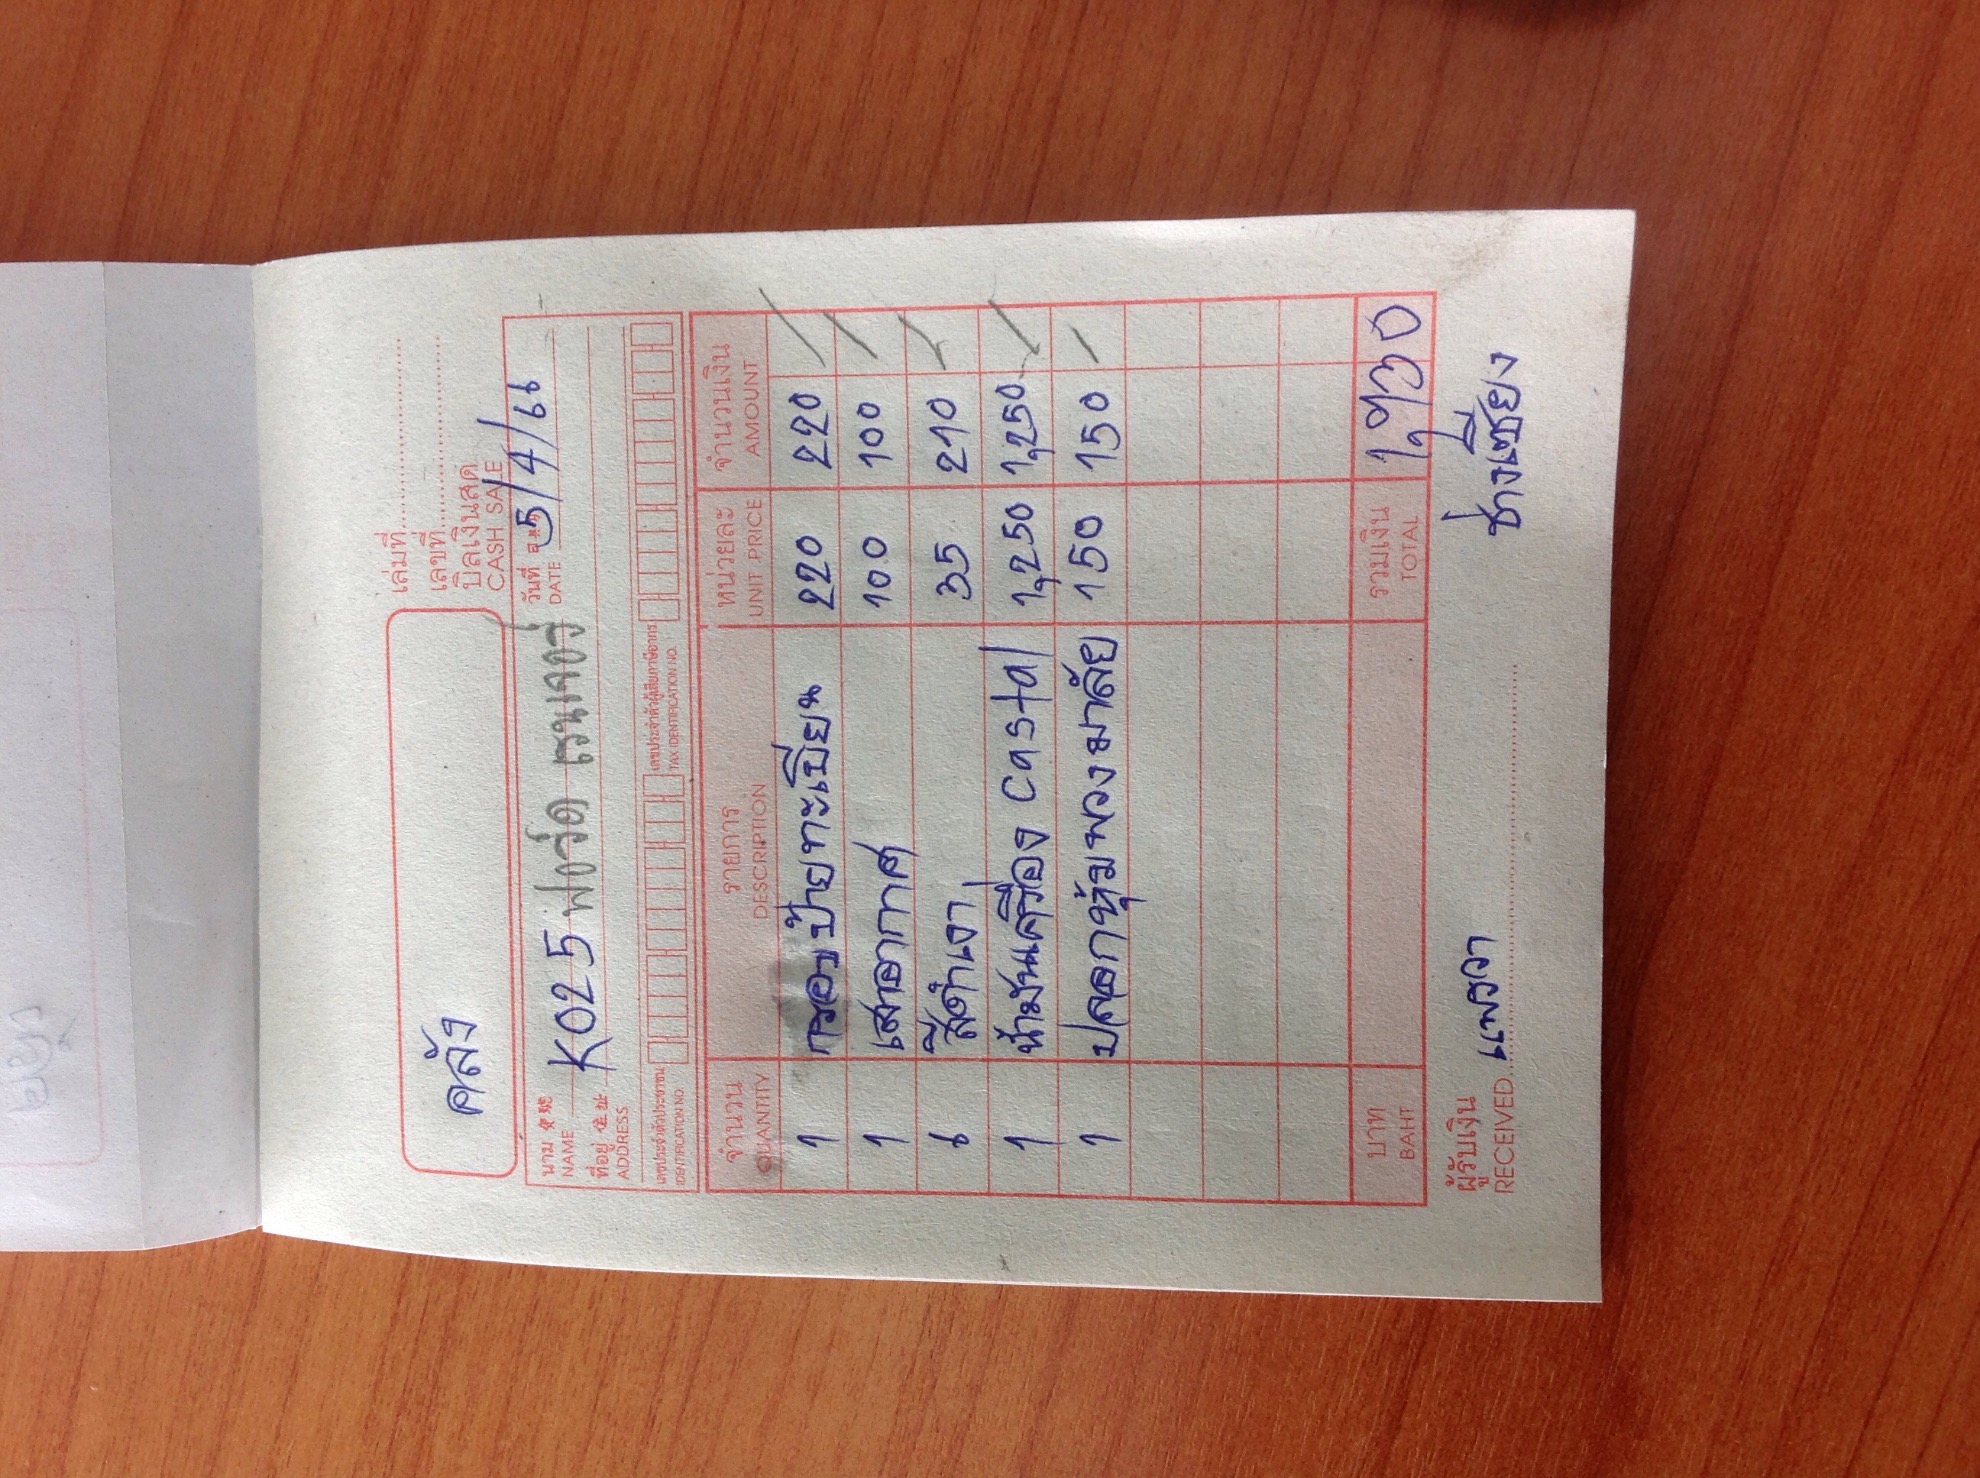 เล่มที่
เลขที่
คลัง
บิลเงินสด
CASH SALE
นาม
NAME
K025 ฟอร์ด เรนเจอร์
วันที่
DATE
5/4/66
ที่อยู่ 住址
ADDRESS
เลขประจำตัวประชาชน
IDENTIFICATION NO.
เลขประจำตัวผู้เสียภาษีอากร
TAX IDENTIFICATION NO.
จำนวน รายการ หน่วยละ จำนวนเงิน
QUANTITY DESCRIPTION UNIT PRICE AMOUNT
1 กรอบป้ายทะเบียน 220 220
1 เสาอากาศ 100 100
6 สีดำเงา 35 210
1 น้ำมันเครื่อง Castal 1,250 1,250
1 ปลอกหุ้มพวงมาลัย 150 150
บาท รวมเงิน 1,930
BAHT TOTAL
ผู้รับเงิน
RECEIVED แพรวา
ช่างเซียง